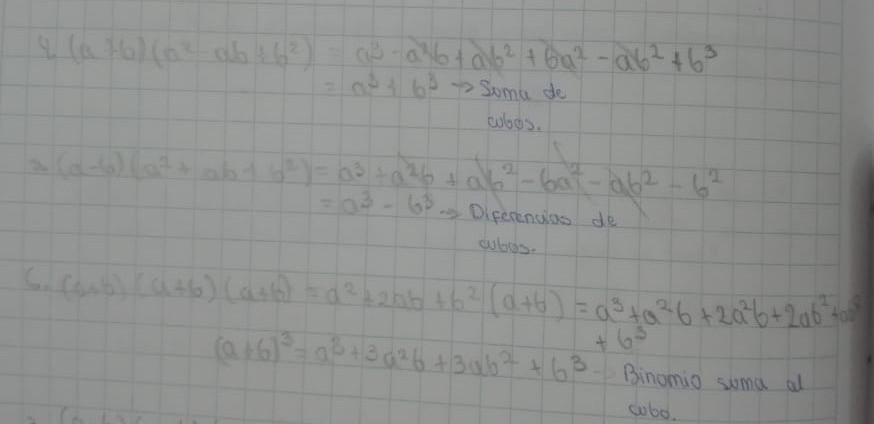 4. (a+b)(a² - ab + b²) = a³ - a²b + ab² + ba² - ab² + b³
= a³ + b³ → Suma de
cubos.
(a-b)(a² + ab + b²) = a³ + a²b + ab² - ba² - ab² - b²
= a³ - b³ → Diferencias de
cubos.
6. (a+b)(a+b)(a+b) = a² + 2ab + b² (a+b) = a³ + a²b + 2a²b + 2ab² +
+ b³
(a+b)³ = a³ + 3a²b + 3ab² + b³ - Binomio suma al
cubo.